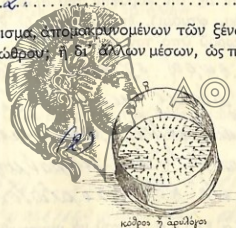 ισμα, ἀπομακρυνομένων τῶν ξέν
ώθρου; ἢ δι᾽ ἄλλων μέσων, ὡς π
(2)
ΑΘ
κόθρος ἢ ἀρυλόγος